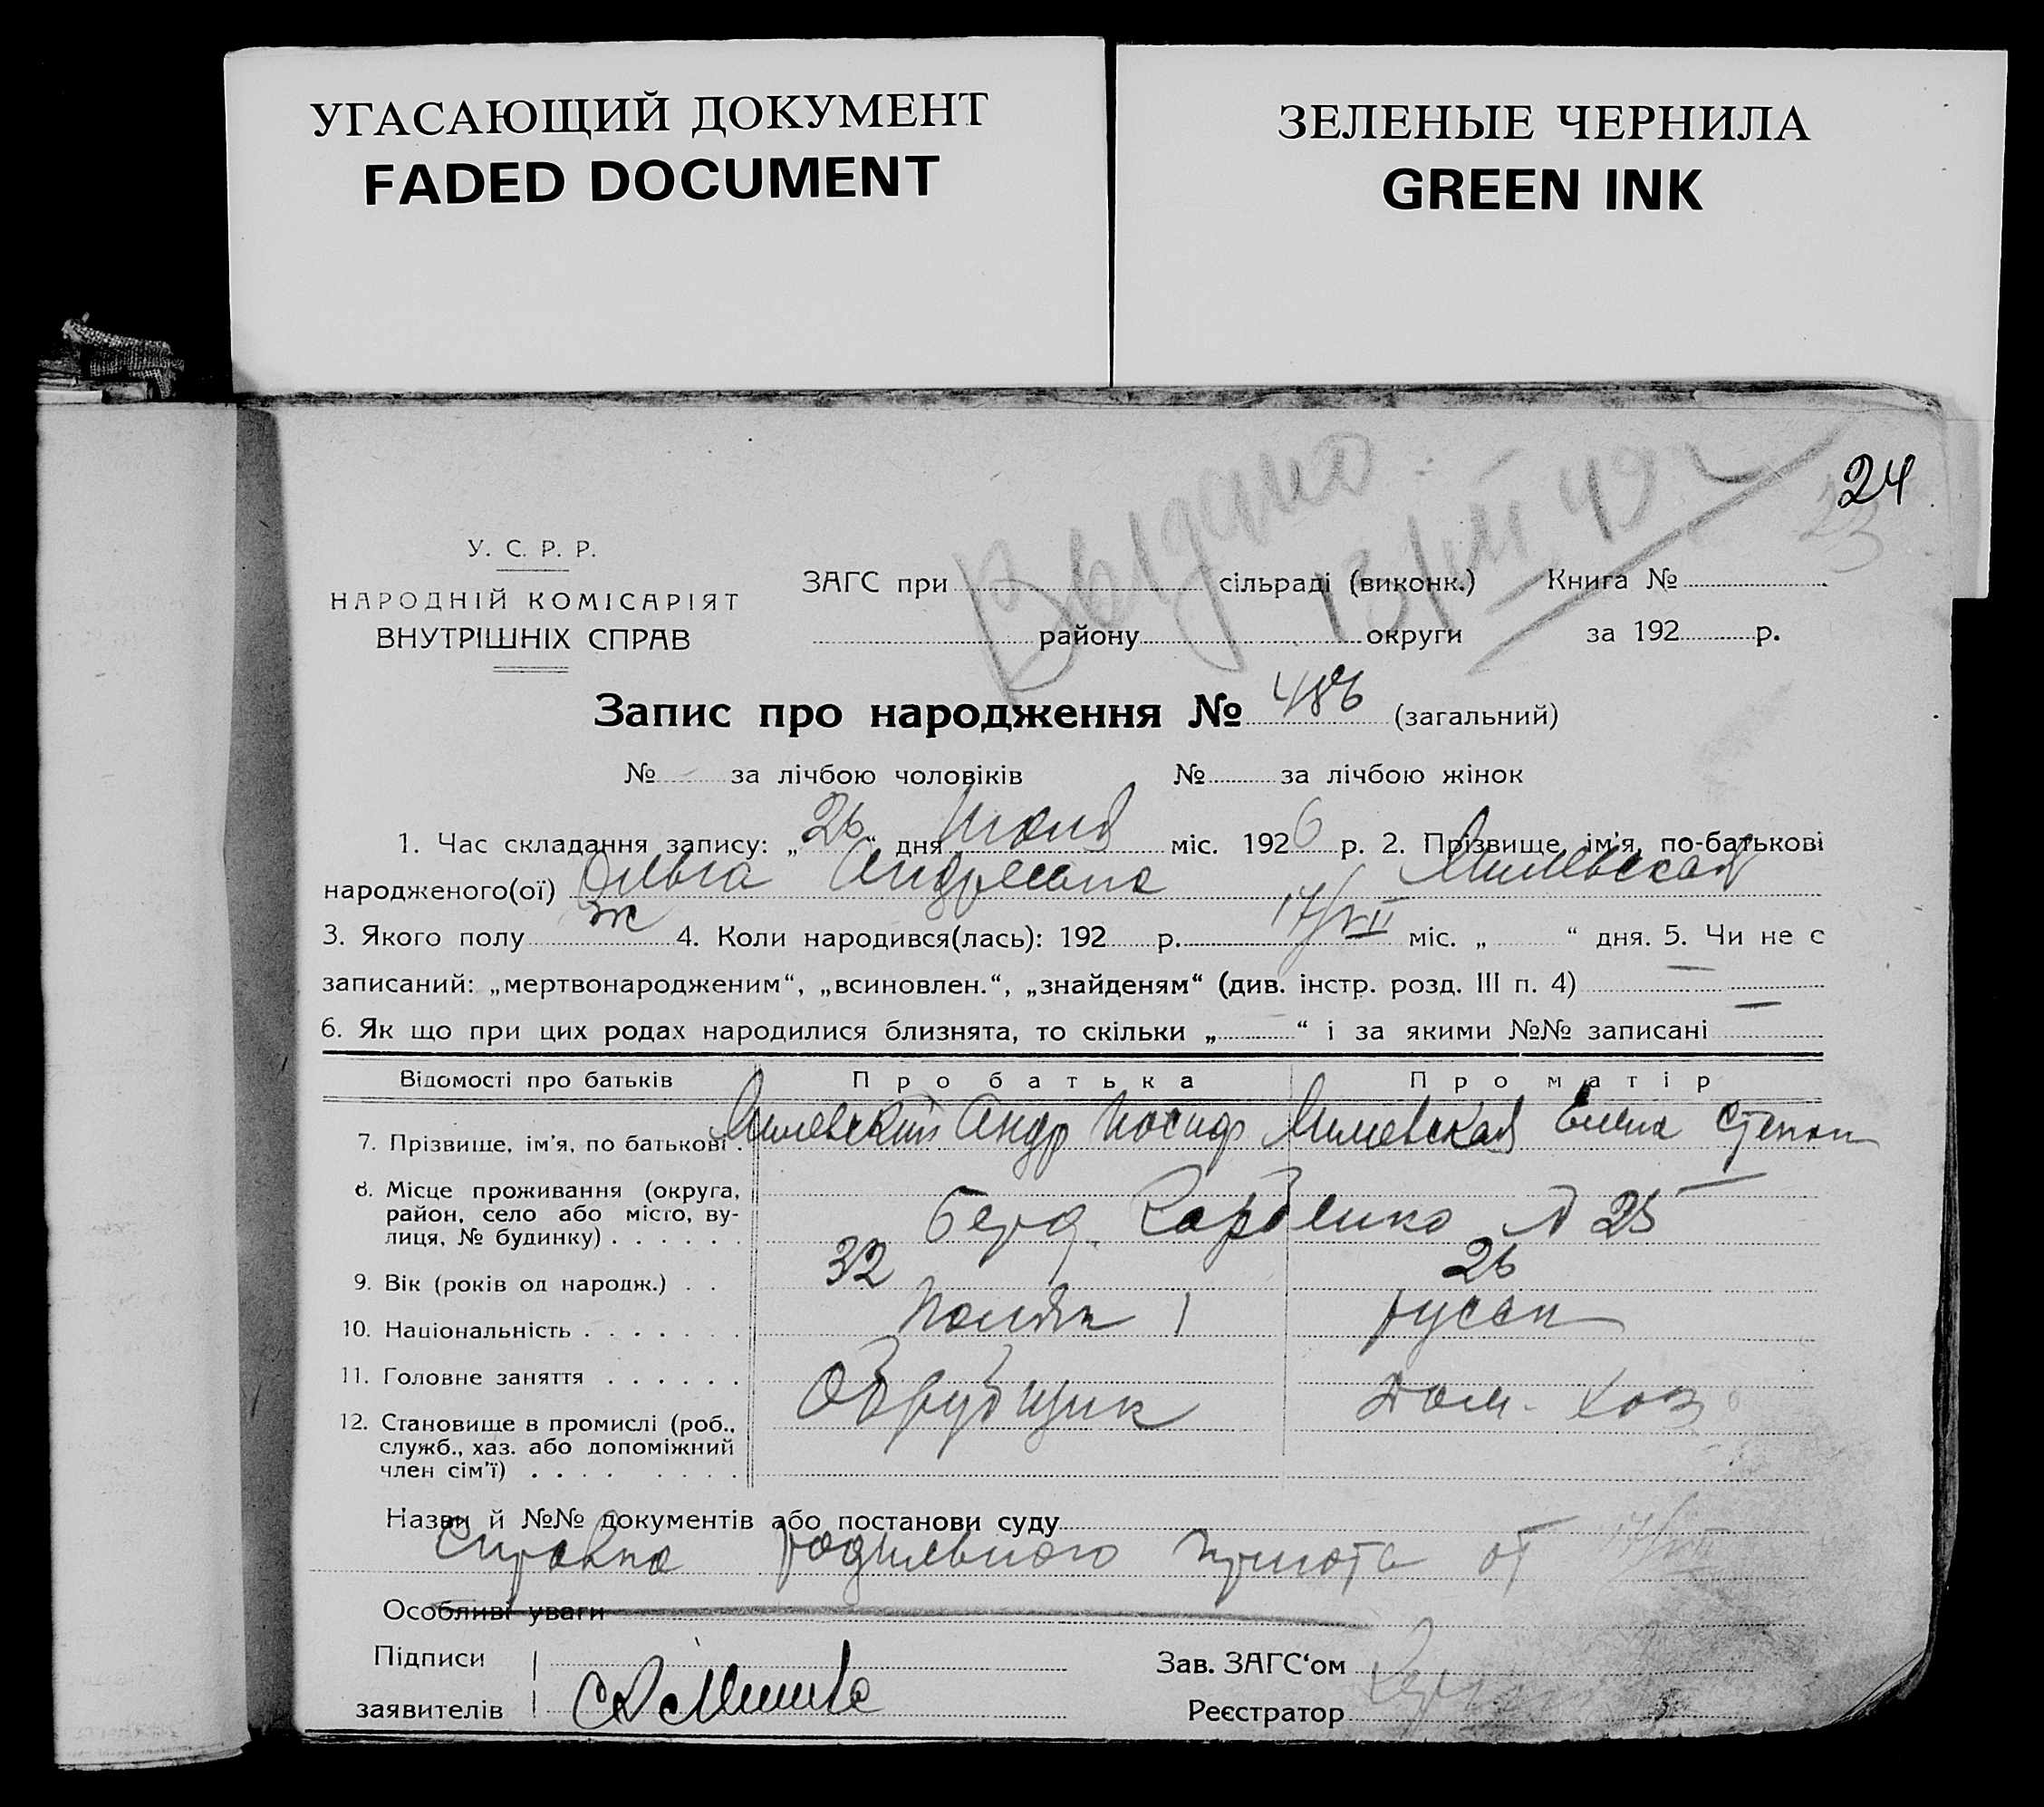 УГАСАЮЩИЙ ДОКУМЕНТ
FADED DOCUMENT
ЗЕЛЕНЫЕ ЧЕРНИЛА
GREEN INK
24
23
Выдано
У. С. Р. Р.
НАРОДНІЙ КОМІСАРІЯТ
ВНУТРІШНІХ СПРАВ
ЗАГС при сільраді (виконк.) Книга №
району округи за 192 р.
Запис про народження № 486 (загальний)
№ за лічбою чоловіків № за лічбою жінок
1. Час складання запису: „26“ дня Июля міс. 1926 р. 2. Прізвище, ім'я, по-батькові
народженого(ої) Ольга Андреевна Милевская
3. Якого полу ж 4. Коли народився(лась): 192 р. 17/VII міс. „ “ дня. 5. Чи не є
записаний: „мертвонародженим“, „всиновлен.“, „знайденям“ (див. інстр. розд. III п. 4) —
6. Як що при цих родах народилися близнята, то скільки „ “ і за якими №№ записані —
Відомості про батьків Про батька Про матір
7. Прізвище, ім'я, по батькові . Милевский Андр Иосиф Милевская Елена Степан
8. Місце проживання (округа,
район, село або місто, ву-
лиця, № будинку) . . . . . . № 25
9. Вік (років од народж.) . . 32 26
10. Національність . . . . . . . Поляк русск
11. Головне заняття . . . . . . Обрубщик Дом. хоз
12. Становище в промислі (роб.,
служб., хаз. або допоміжний
член сім'ї) . . . . . . . .
Назви й №№ документів або постанови суду
Справка родильного приюта от 17/VII
Особливі уваги
Підписи
заявителів
Зав. ЗАГС‘ом
Реєстратор